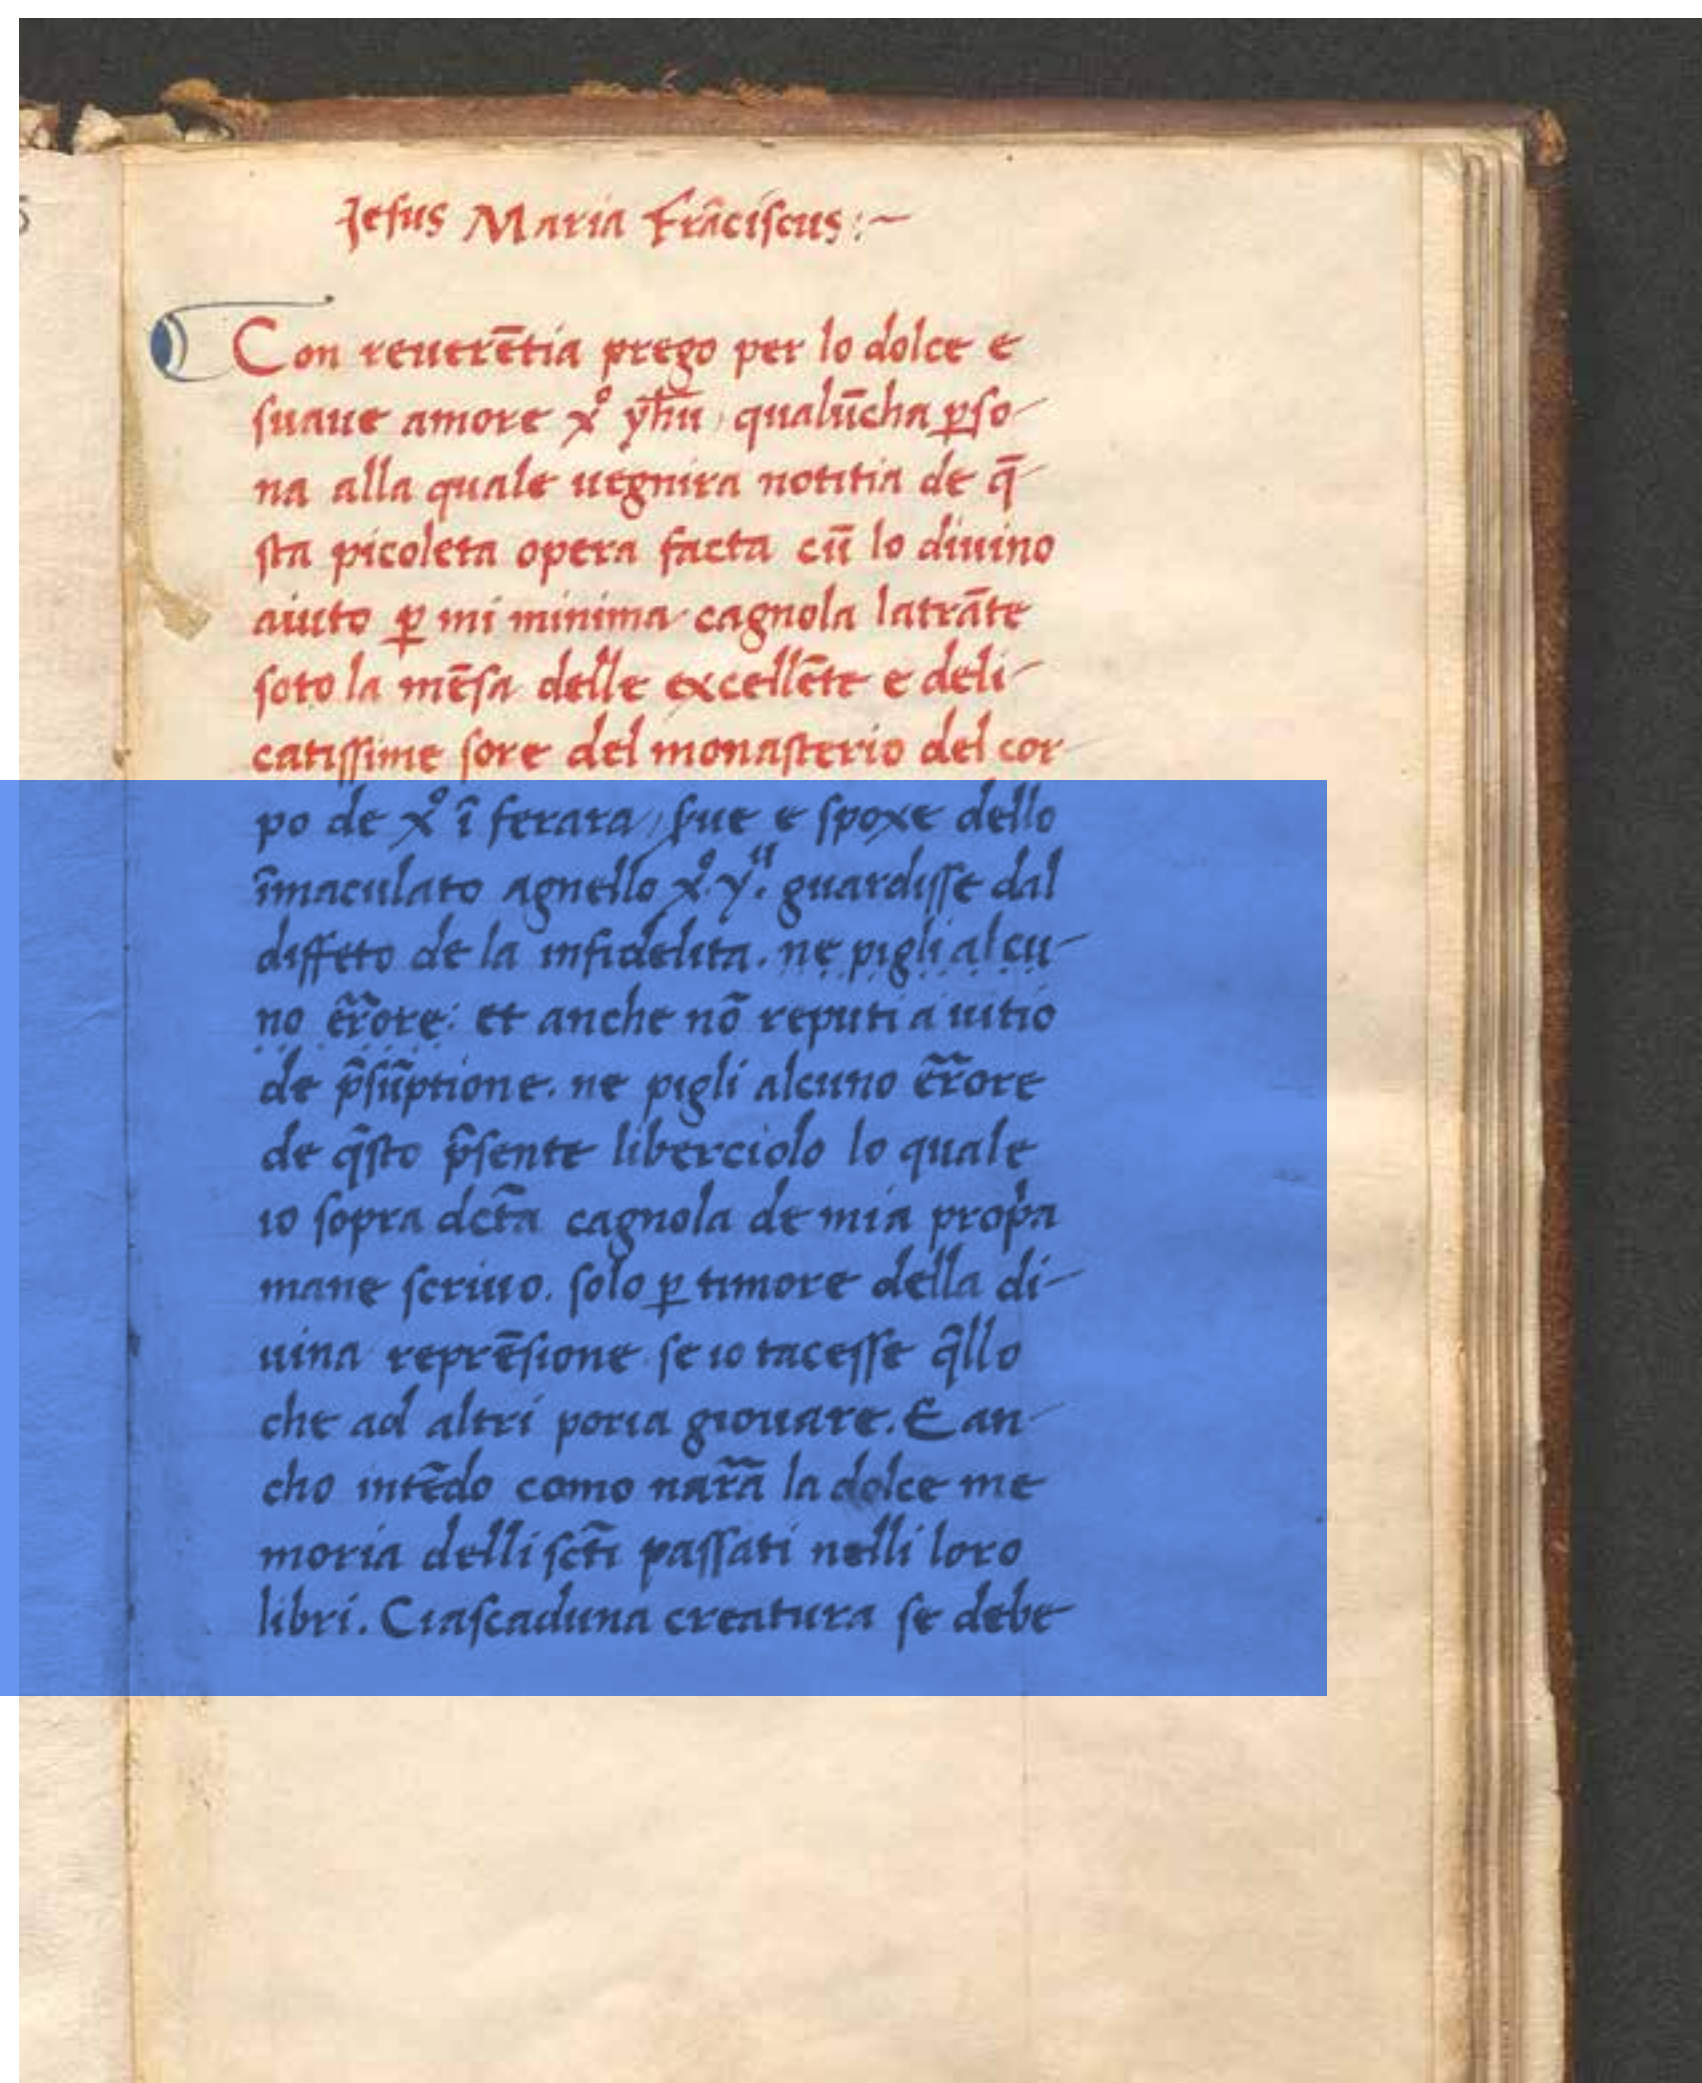 Jesus Maria Frāciscus:~
Con reuerētia prego per lo dolce e
suaue amore x° yħu, qualūcha ꝑso-
na alla quale uegnira notitia de q̄-
sta picoleta opera facta cū lo diuino
aiuto ꝑ mi minima cagnola latrāte
soto la mēsa delle excellēte e deli-
catissime sore del monasterio del cor-
po de x° ī ferara, sue e spoxe dello
īmaculato agnello x°. yᵘ. guardisse dal
diffeto de la infidelita. ne pigli alcu-
no er̄rore: et anche nō reputi a uitio
de p̄sūptione. ne pigli alcuno er̄rore
de q̄sto p̄sente liberciolo lo quale
io sopra dct̄a cagnola de mia propa
mane scriuo. solo ꝑ timore della di-
uina reprēsione se io tacesse q̄llo
che ad altri poria giouare. E an-
cho intēdo como nar̄ā la dolce me
moria delli sct̄i passati nelli loro
libri. Ciascaduna creatura se debe